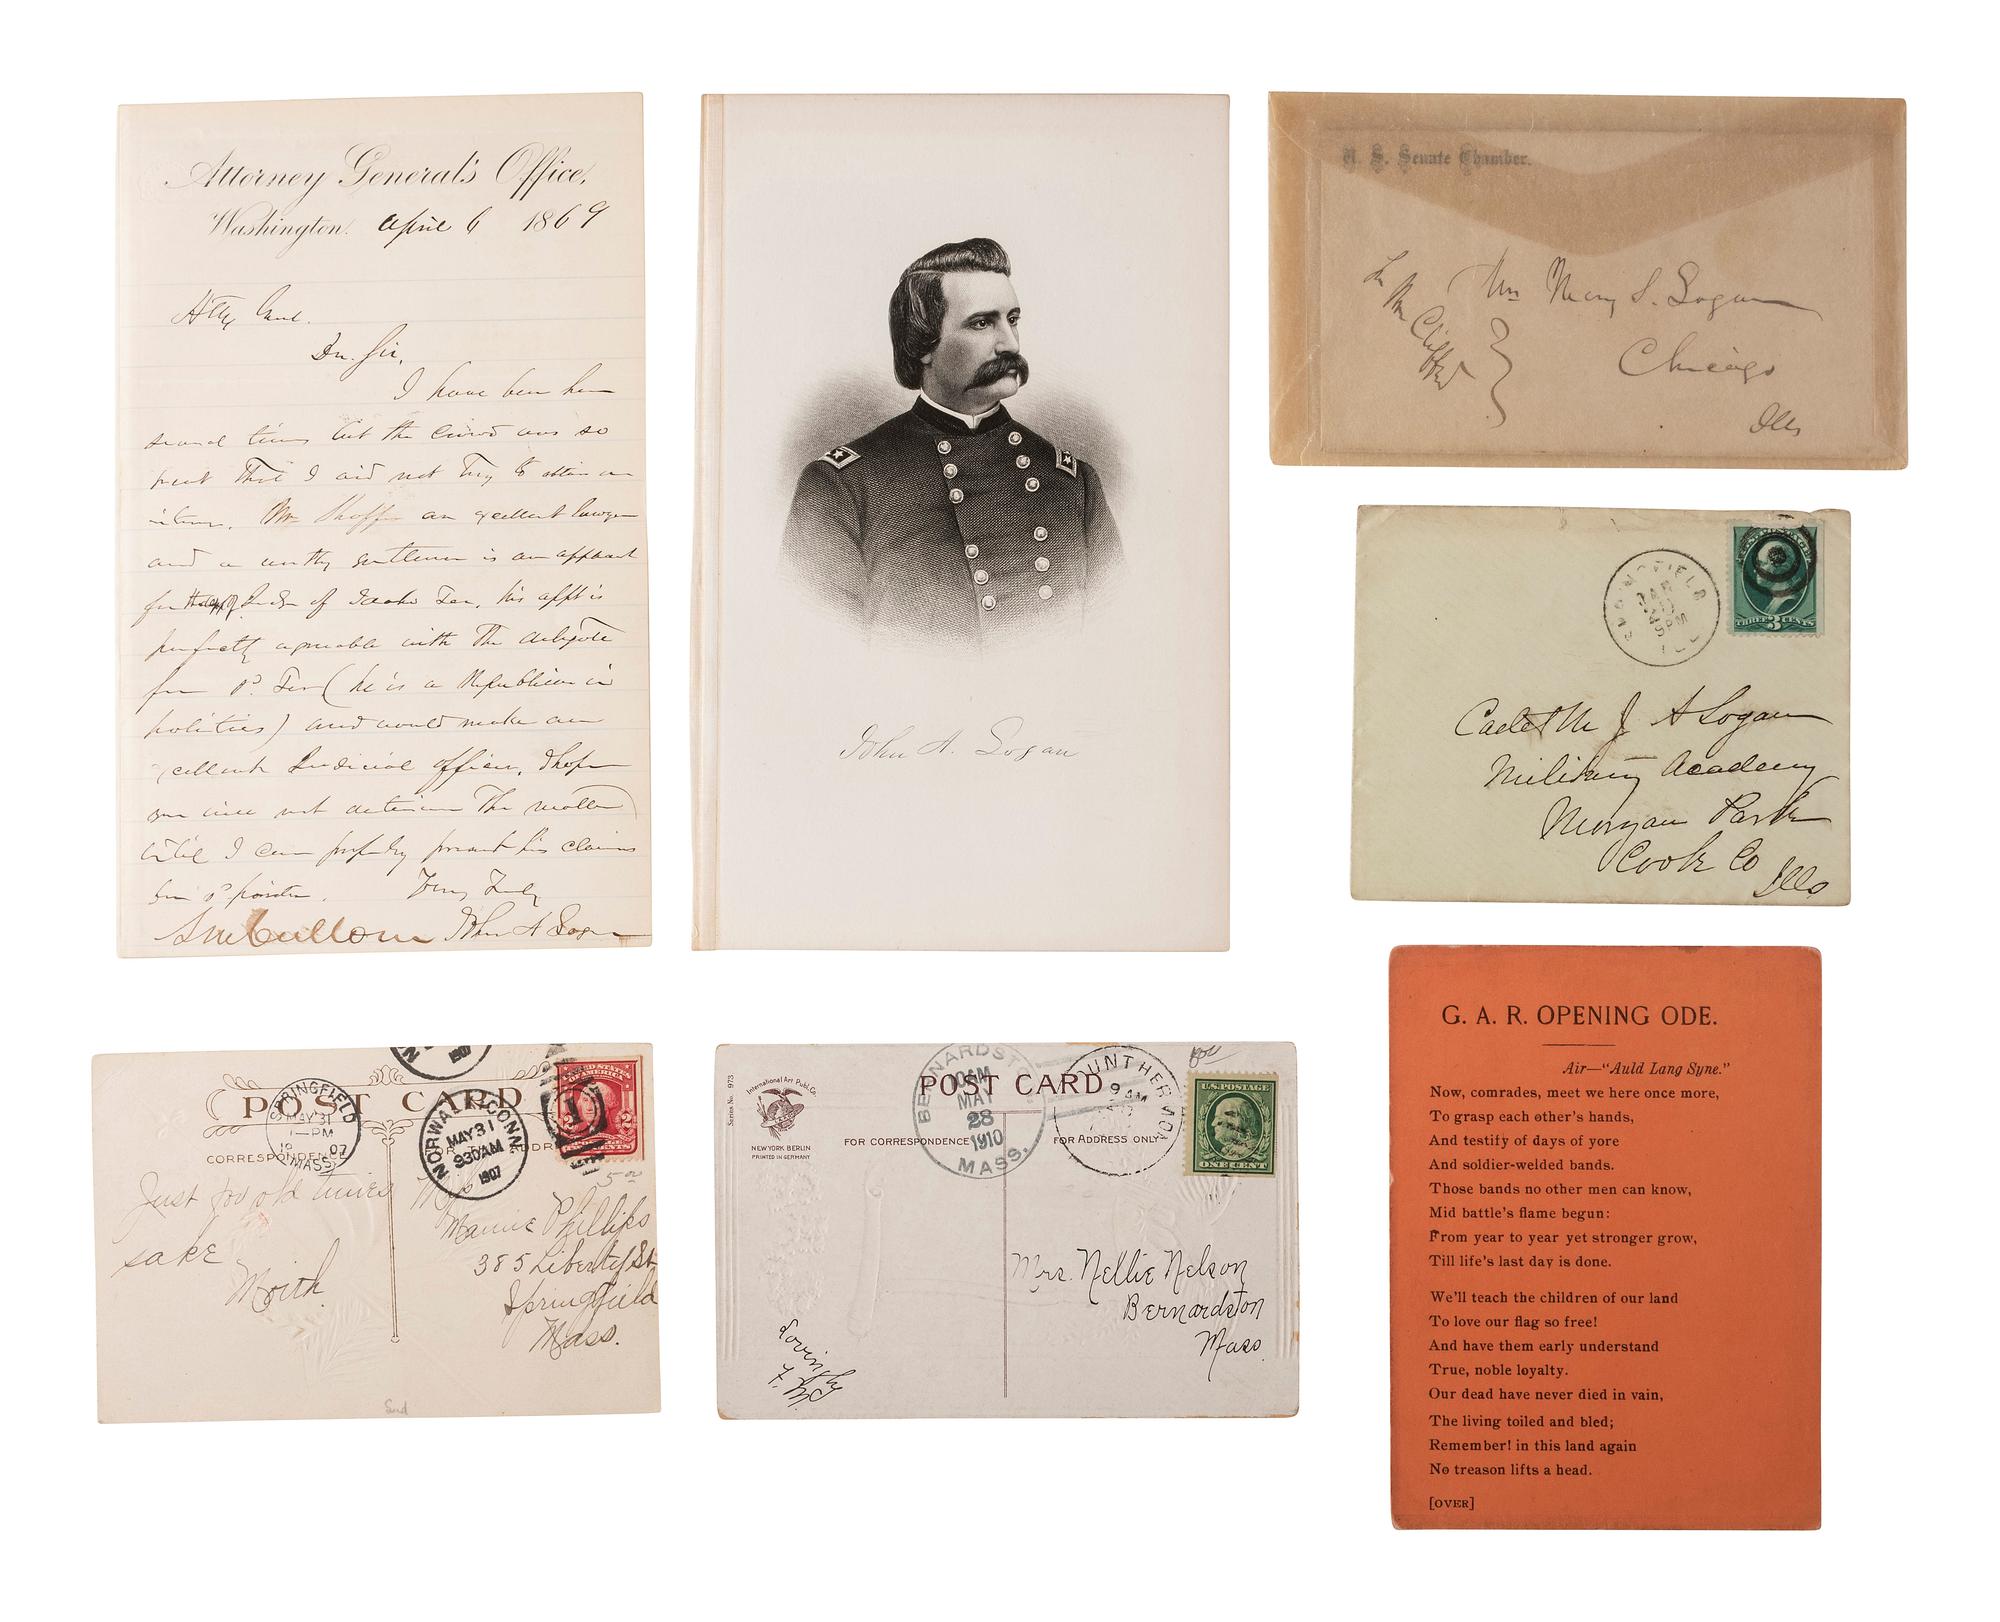 Attorney General's Office,
Washington. April 6 1869
Atty Genl.
Dr. Sir,
I have been here
several times but the crowd was so
great that I did not try to obtain an
interview. Mr. an excellent lawyer
and a worthy gentleman is an applicant
for of Idaho Ter. his appt is
perfectly agreeable with the delegate
from sd. Ter ( he is a Republican in
politics) and would make an
excellent Judicial officer, I hope
you will not determine the matter
until I can properly present his claims
for sd position. Very Truly
S M Cullom John A Logan
John A. Logan
U. S. Senate Chamber.
Mrs Mary S. Logan
Chicago
Ills
SPRINGFIELD
JAN
5 PM
ILL
THREE 3 CENTS
Cadet M J A Logan
Military Academy
Morgan Park
Cook Co
Ills
POST CARD
SPRINGFIELD
MAY 31
1-PM
1907
MASS.
NORWALK, CONN.
MAY 31
930AM
1907
1907
UNITED STATES
OF AMERICA
2 2
CENTS
CORRESPONDENCE
5 00
Just for old times
sake
Moith
Mrs
Mamie Phillips
385 Liberty St
Springfield
Mass.
End
Series No. 973
International Art Publ. Co.
NEW YORK BERLIN
PRINTED IN GERMANY
POST CARD
BERNARDST
10AM
MAY
28
1910
MASS.
OUNT HERMON
9 AM
U.S. POSTAGE
ONE CENT
FOR CORRESPONDENCE
FOR ADDRESS ONLY
Mrs. Nellie Nelson
Bernardston
Mass.
Lovingly
G. A. R. OPENING ODE.
Air—“Auld Lang Syne.”
Now, comrades, meet we here once more,
To grasp each other's hands,
And testify of days of yore
And soldier-welded bands.
Those bands no other men can know,
Mid battle's flame begun:
From year to year yet stronger grow,
Till life's last day is done.
We'll teach the children of our land
To love our flag so free!
And have them early understand
True, noble loyalty.
Our dead have never died in vain,
The living toiled and bled;
Remember! in this land again
No treason lifts a head.
[OVER]